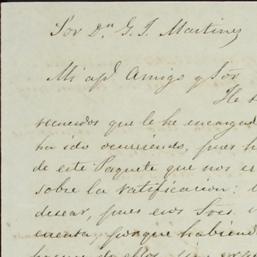 Sor Dn G. J. Martinez
Mi apl. Amigo y Sor
He
recuerdos que le he encargad
ha ido ocurriendo, pues h
de este Paquete que nos
sobre la ratificacion:
desear, pues esos Sres.
cuenta, porque habiend
de ellos